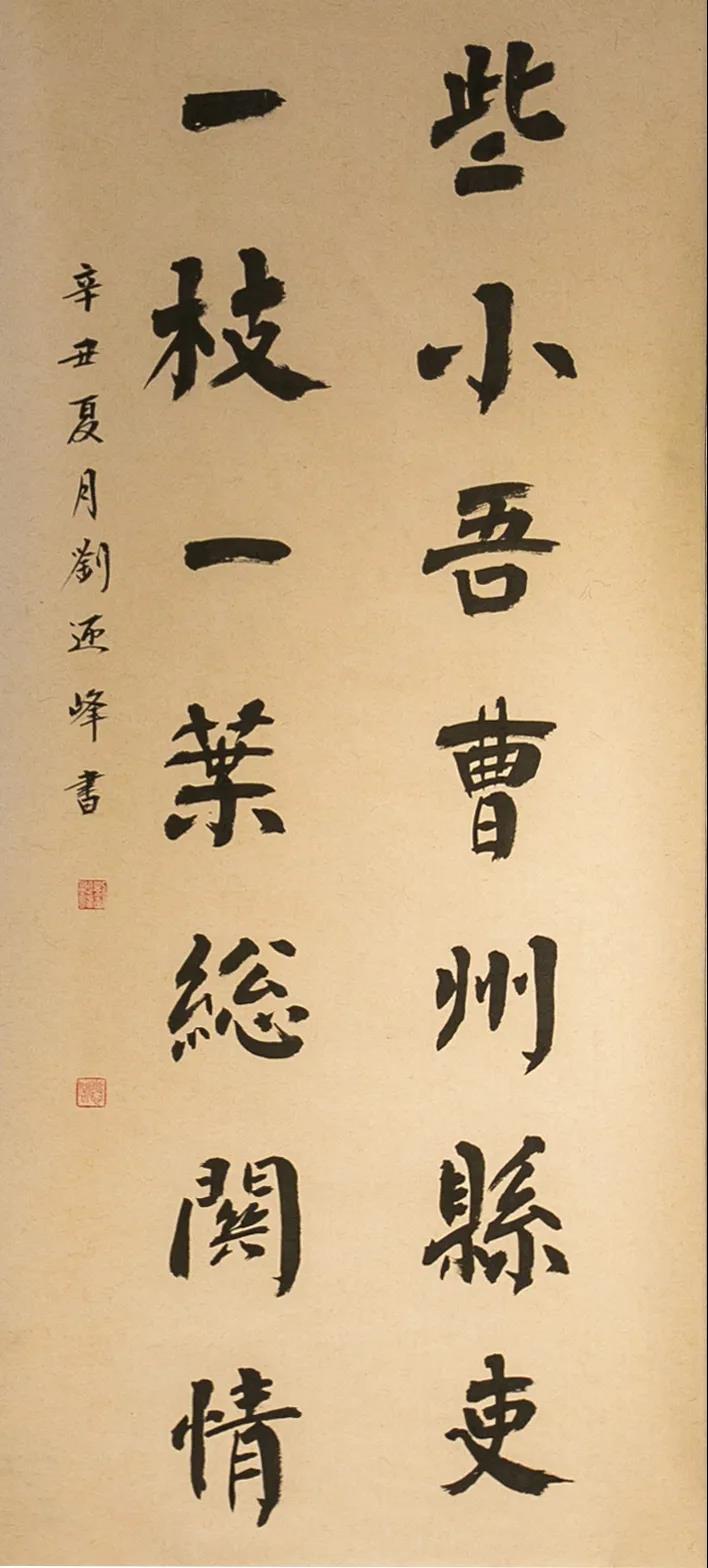 些小吾曹州縣吏
一枝一葉総関情
辛丑夏月劉迎峰書